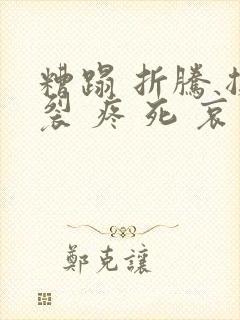 糟蹋 折騰
裂 疼 死 哀
鄭克讓